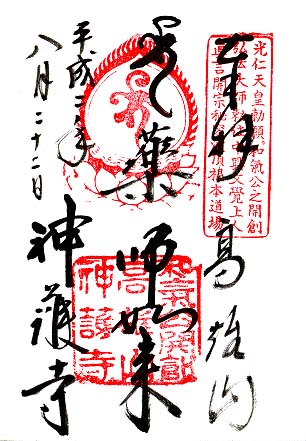 奉拝 高雄山
薬師如来
平成二年
八月二十二日 神護寺
光仁天皇勅願 和気公之開創
弘法大師
真言開宗 根本道場
和気公開創
高雄山
神護寺